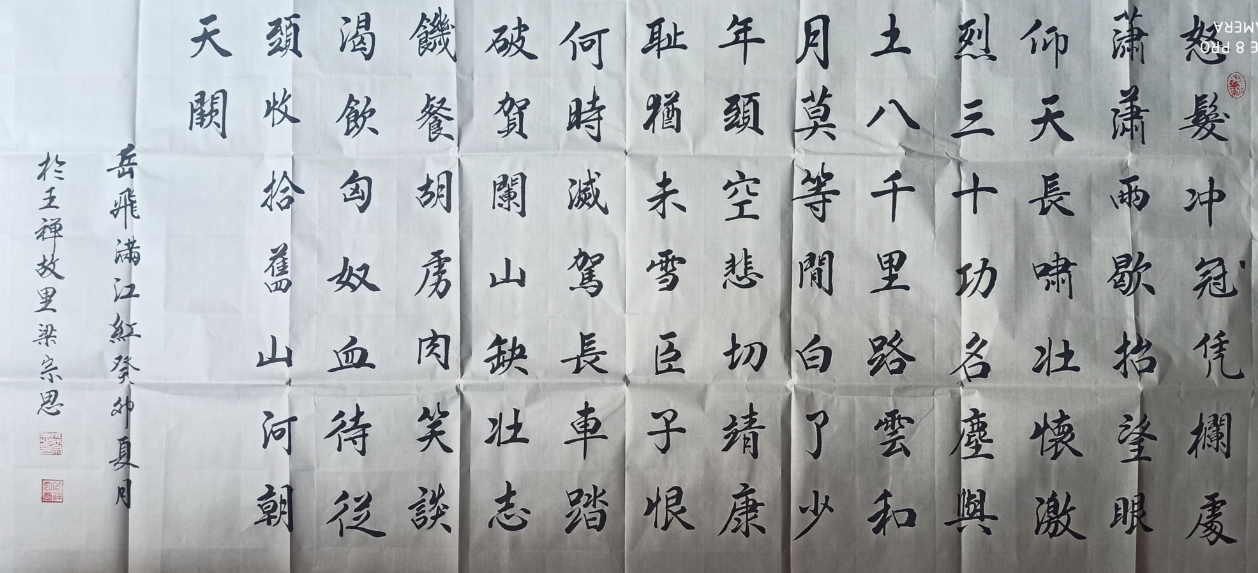 怒髮冲冠凭欄處
潇潇雨歇抬望眼
仰天長啸壮懷激
烈三十功名塵與
土八千里路雲和
月莫等閒白了少
年頭空悲切靖康
耻猶未雪臣子恨
何時滅駕長車踏
破賀闌山缺壮志
饑餐胡虏肉笑談
渴飲匈奴血待從
頭收拾舊山河朝
天闕
岳飛满江紅癸卯夏月
於王禅故里梁宗思